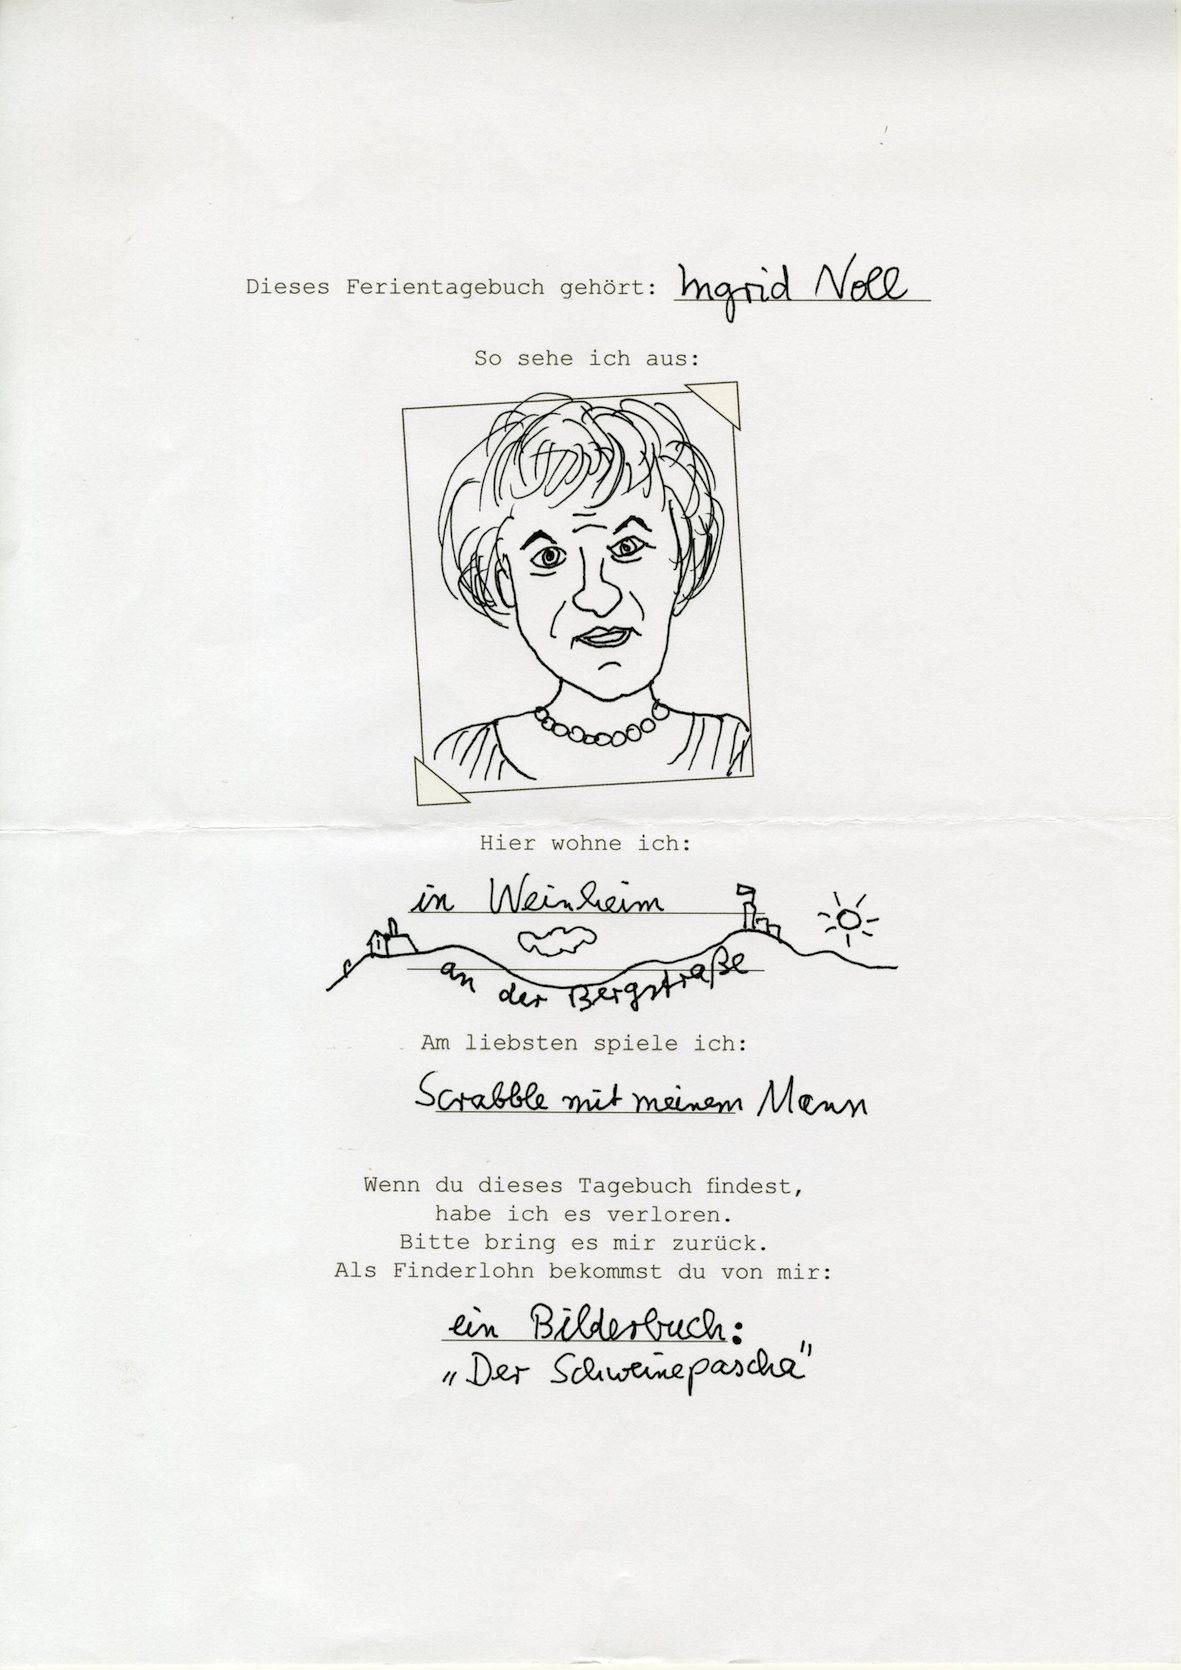 Dieses Ferientagebuch gehört: Ingrid Noll
So sehe ich aus:
Hier wohne ich:
in Weinheim
an der Bergstraße
Am liebsten spiele ich:
Scrabble mit meinem Mann
Wenn du dieses Tagebuch findest,
habe ich es verloren.
Bitte bring es mir zurück.
Als Finderlohn bekommst du von mir:
ein Bilderbuch:
„Der Schweinepascha"